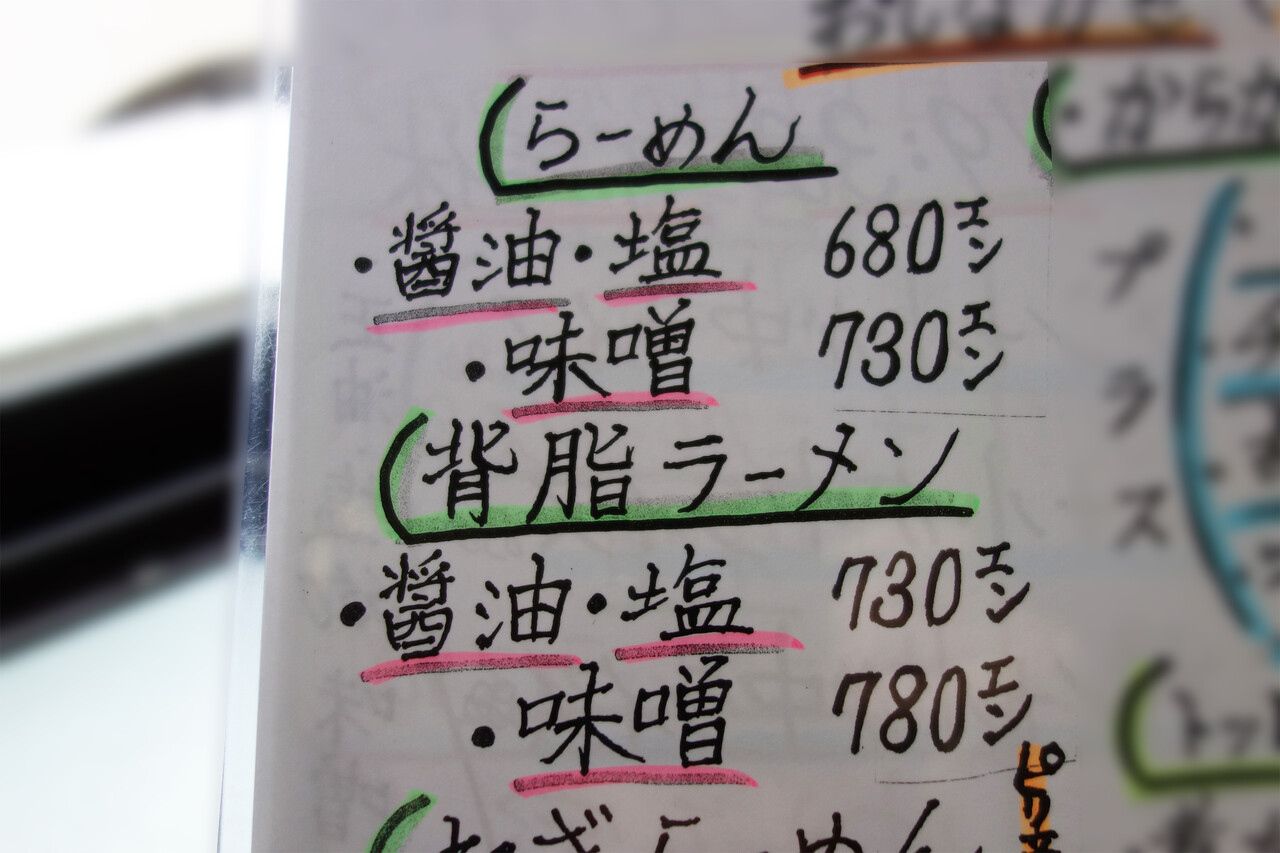 らーめん
・醤油・塩 680エン
・味噌 730エン
背脂ラーメン
・醤油・塩 730エン
・味噌 780エン
ねぎらーめん
ピリ辛
・からか
プラス
トッピ